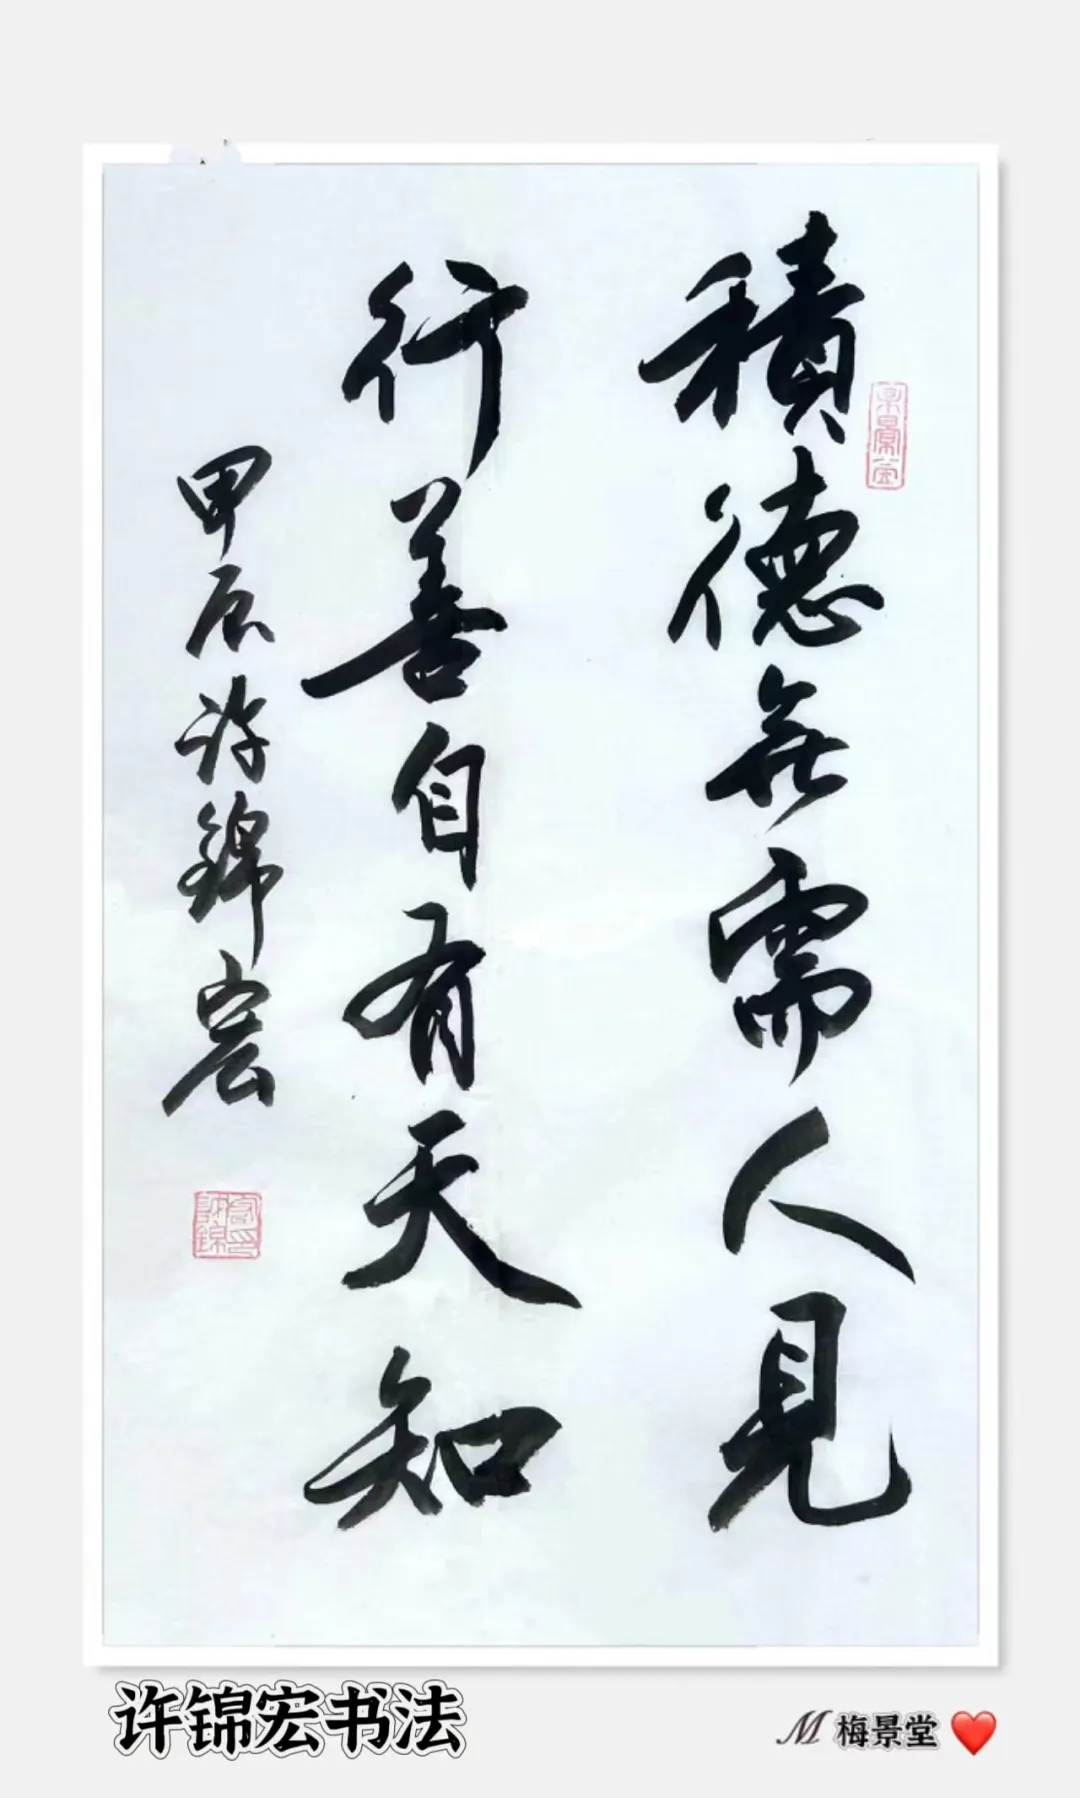 積德無需人見
行善自有天知
甲辰许錦宏
许锦宏书法
M 梅景堂